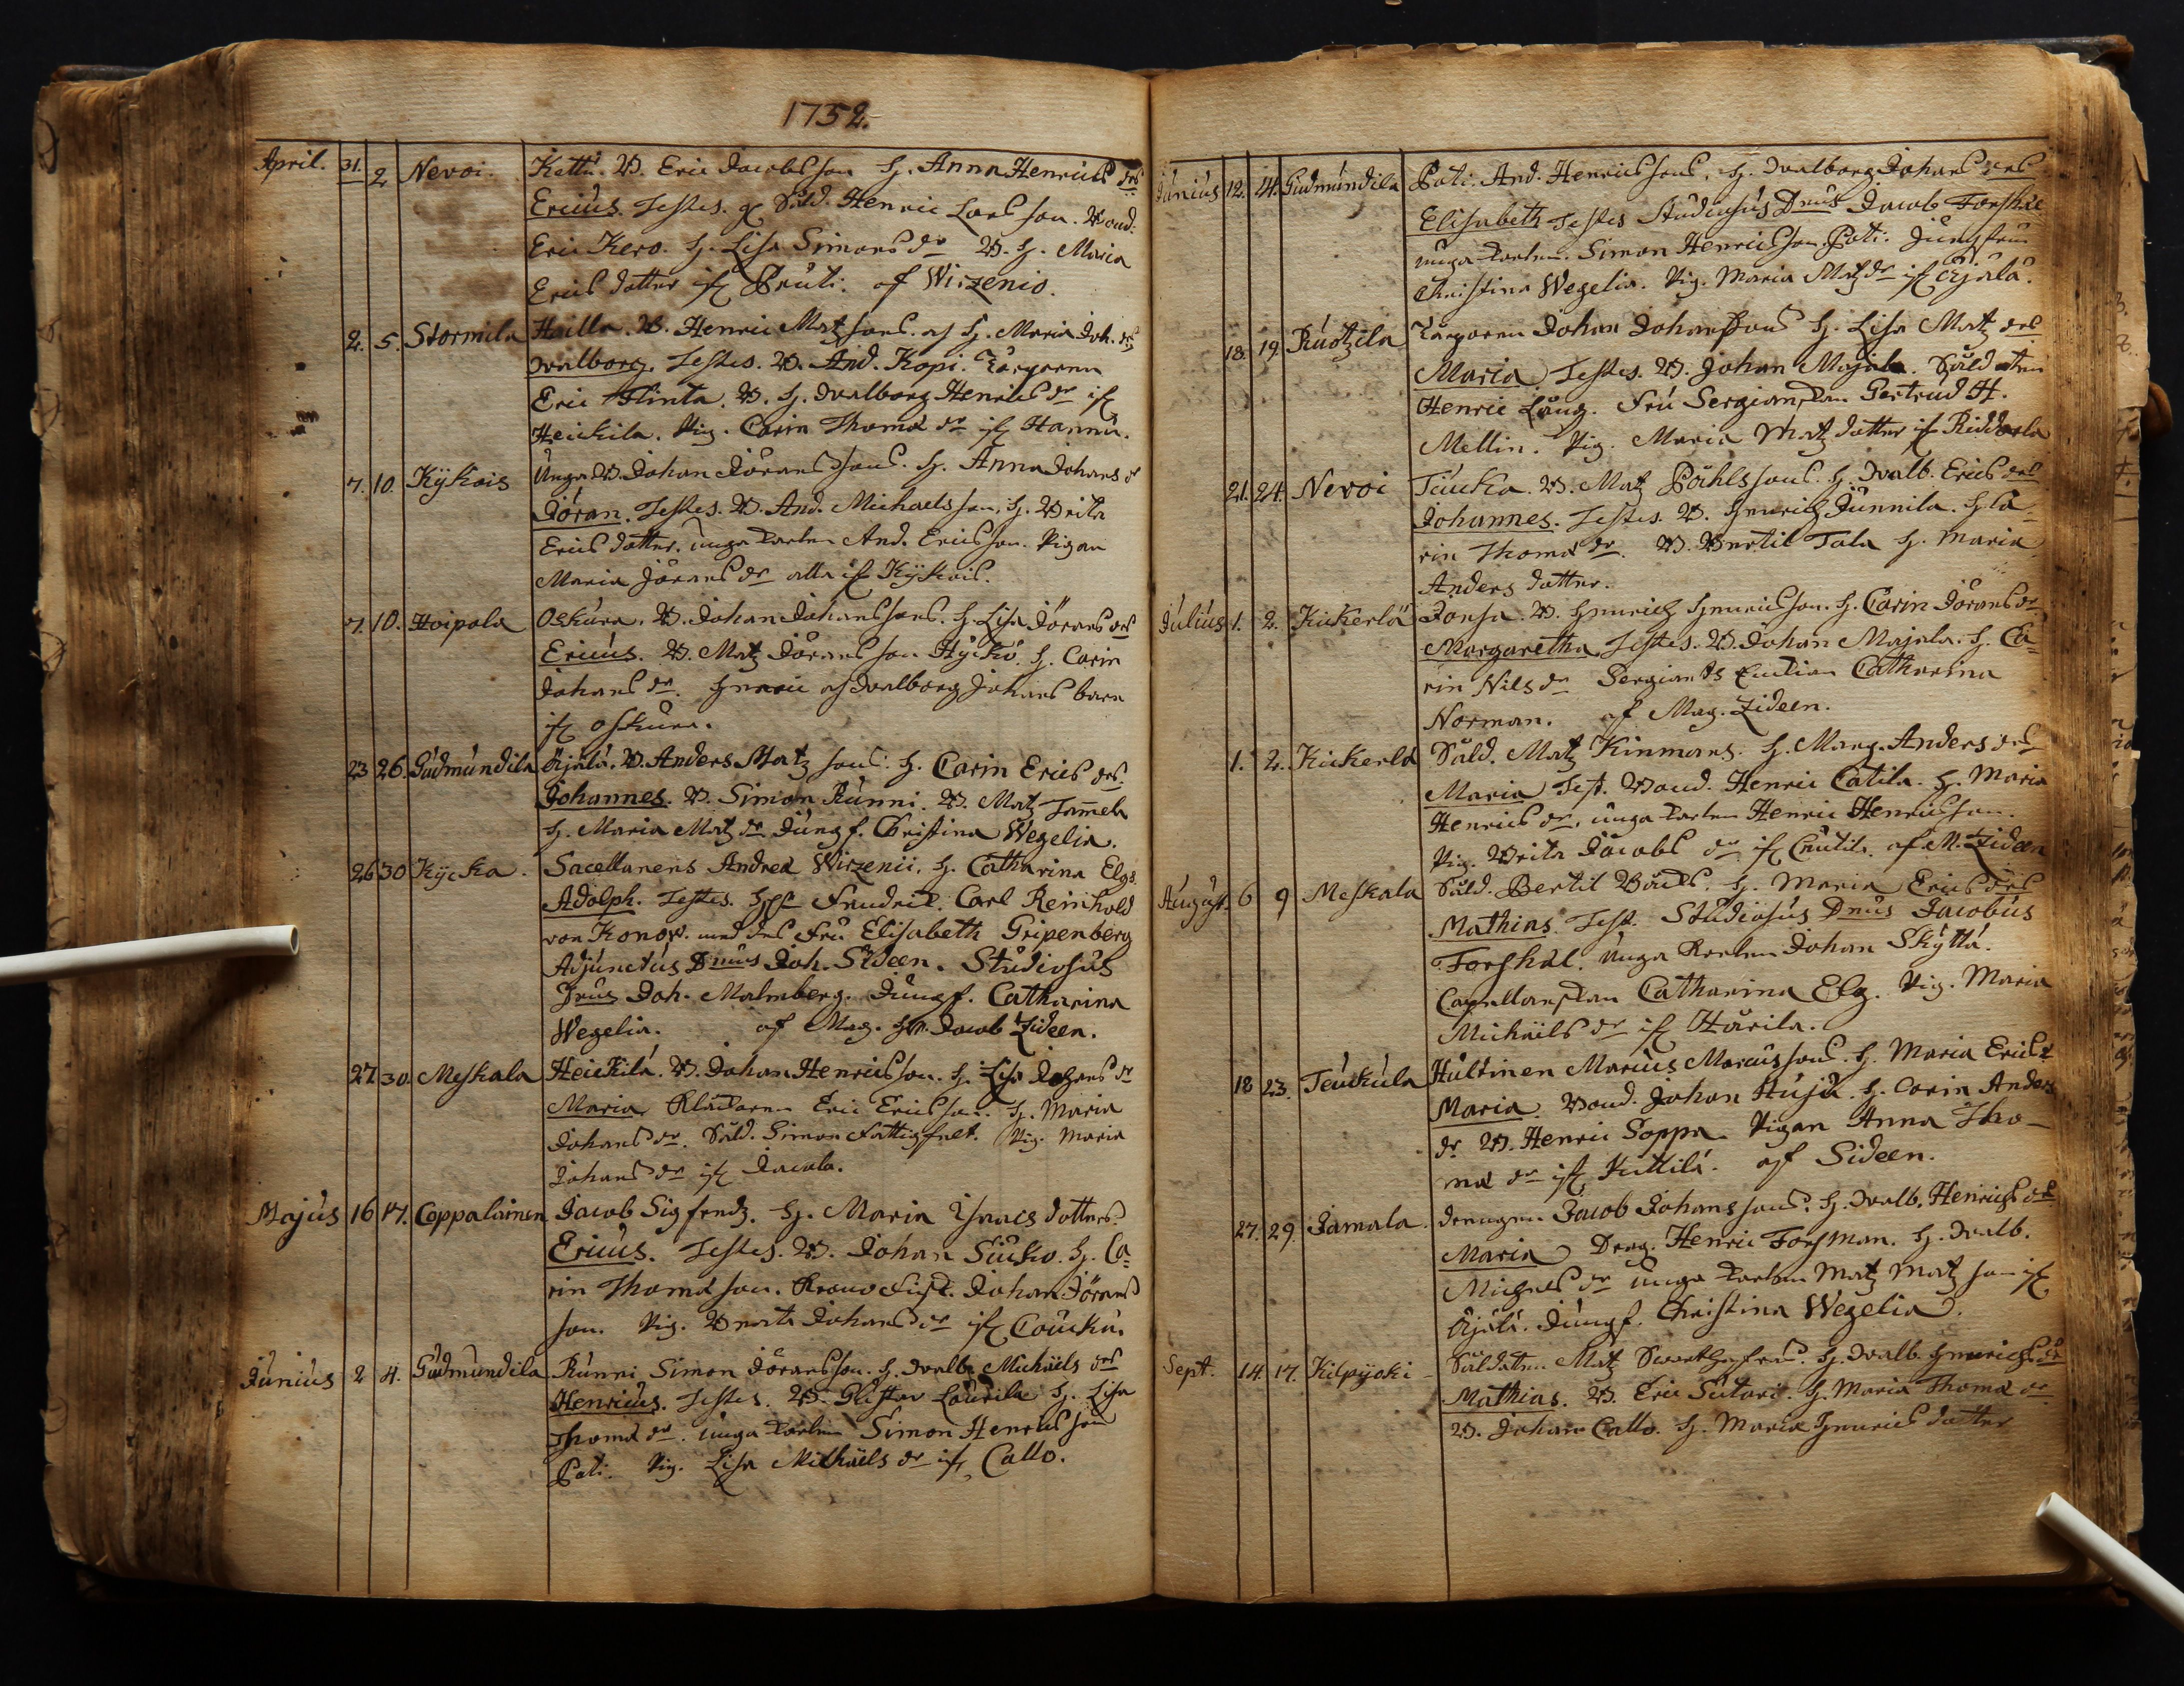 1752.
April. 31. 2 Nevoi. Kettu. B. Eric Jacobsson H. Anna Henrics drs
Ericus. Testes. gl Sold. Henric Larsson. Bond.
Eric Kero. H. Lisa Simons dr B. H. Maria
Erics dotter if Pruti. af Wirzenio.
2. 5. Stormila Heilla. B. Henric Matzsons. af H. Maria Joh. drs
Walborg. Testes. B. And. Kopi.
Eric Flinta. B. H. Walborg Henrics dr if
Heickila. Pig. Carin Thomæ dr if Hannu.
7. 10. Kÿkois Unga B. Johan Jöransons. H. Anna Johans d
Jöran. Testes. B. And. Michaelsson, H. Brita
Erics dotter. unga karlen And. Ericsson. Pigan
Maria Jörans dr alla if Kÿkois.
7. 10. Hoipola Oskura. B. Johan Johanssons. H. Lisa Jörans drs
Ericus. B. Matz Jöransson Hÿckö. H. Carin
Johans dr. Henric af Walborg Johans barn
if Oskura.
23 26. Gudmundila Äijälä. B. Anders Matzsons. H. Carin Erics drs
Johannes. B. Simon Runni. B. Matz Tam̄ela
H. Maria Matz dr Jungf. Christina Wegelia.
26 30 Kÿcka. Sacellanens Andreæ Wirzenii. H. Catharina Elgs.
Adolph. Testes. Fendrik. Carl Reinhold
von Konow. med des Fru Elisabeth Gripenberg
Adjunctus Dnus Joh. Sideen. Studiosus
Dnus Joh. Malmberg. Jungf. Catharina
Wegelia. af Mag. Hr. Jacob Zideen.
27 30. Meskala Heickilä. B. Johan Henricsson. H. Lisa Johans dr
Maria. Eric Ericsson. H. Maria
Johans dr. Sold. Simon Pig. Maria
Johans dr if Jacala.
Majus 16 17. Coppalainen Jacob Sigfredz. H. Maria Isaacs dotters.
Ericus. Testes. B. Johan Siuko. H. Ca=
rin Thomæson. Johan Jörans
son. Pig. Johans dr if Coucku.
Junius 2 4. Gudmundila Runni Simon Jöransson. H. Walb. Michäels drs
Henricus. Testes. B. Laurila H. Lisa
Thomæ dr. unga karlen Simon Henricsson
Pati. Pig. Lisa Michäels dr if Callo.
Junius 12. 14. Gudmundila Pati. And. Henricsons, H. Walborg Johans drs
Elisabeth Testes Studiosus Dnus Jacob Forskåhl
unga karlen. Simon Henricsson. Pati. Jungfru
Christina Wegelia. Pig. Maria Matz dr if Äijälä.
18. 19. Ruotzila Johan Johanssons H. Lisa Matz drs
Maria. Testes. B. Johan Majala. Soldaten
Henric Lång. Fru Gertrud H.
Mellin. Pig. Maria Matz dotter if Riddarla
21. 24. Nevoi Teucka. B. Matz Påhlsons. H. Walb. Erics drs
Johannes. Testes. B. Henrich Junnila. H. Ca=
rin Thomæ dr. B. Bertil Tala H. Maria
Anders dotter.
Julius 1. 2. Kickerlä Jonsa. B. Henrich Henricsson. H. Carin Jörans dr
Margaretha. Testes. B. Johan Majala. H. Ca=
rin Nils dr Catharina
Norman. af Mag. Zideen.
1. 2. Kickerlä Sold. Matz Kinmans. H. Marg. Anders drs
Maria Test. Bond. Henric Catila. H. Maria
Henrics dr, unga karlen Henric Henricsson.
Pig. Brita Jacobs dr if Cnutila. af M. Zideen
August. 6 9 Meskala Sold. Bertil H. Maria Erics drs
Mathias. Test. Studiosus Dnus Jacobus
Forskåhl. unga karlen Johan Skÿttä.
Catharina Elg. Pig. Maria
Michäils dr if Härila.
18 23. Teuckula Hultinen Marcus Marcussons. H. Maria Erics d
Maria. Bond. Johan Huja. H. Carin Anders
dr B. Henric Soppa. Pigan Anna Tho-
mæ dr if Kuttilä. af Sideen.
27. 29. Jamala. drengen Jacob Johanssons. H. Walb. Henrichs dr
Maria Drag. Henric Forsman. H. Walb.
Michels dr unga karlen Matz Matzson if
Äijälä. Jungf. Christina Wegelia.
Sept. 14. 17. Kilpijoki Soldaten Matz H. Walb. Henrichs dr
Mathias. B. Eric Sutari. H. Maria Thomæ dr
B. Johan Callo. H. Maria Henrics dotter